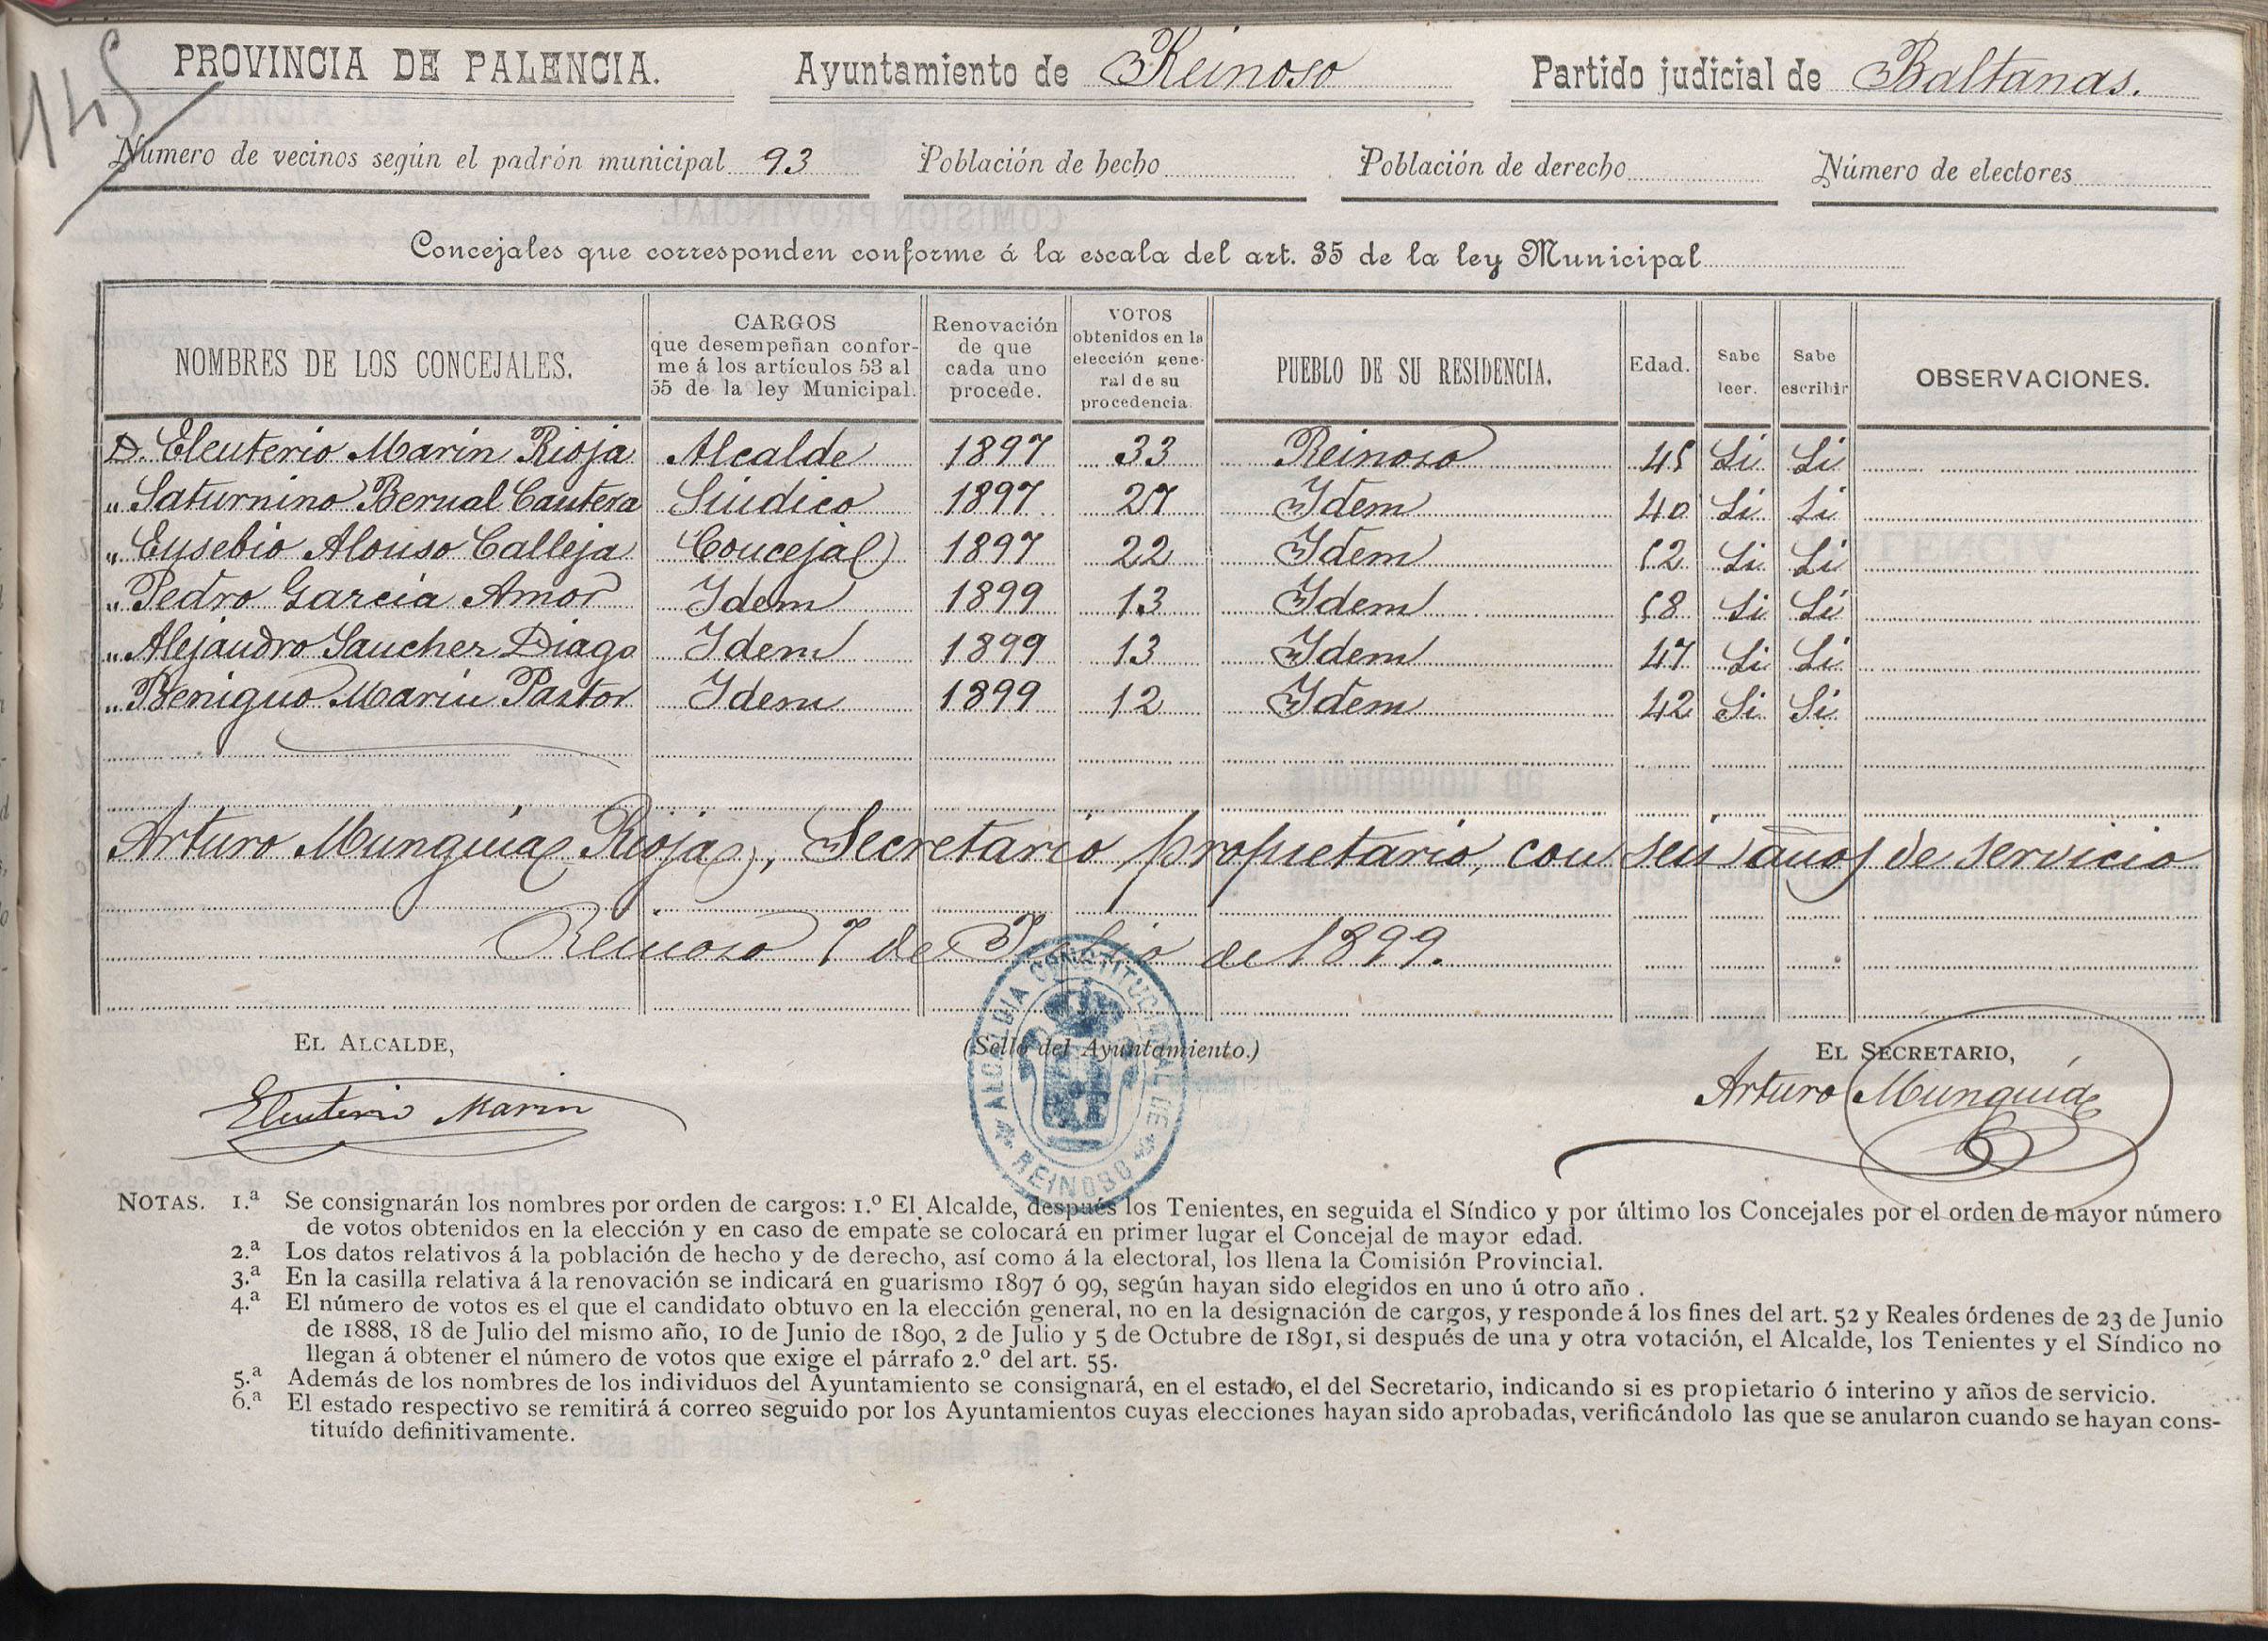 145
PROVINCIA DE PALENCIA. Ayuntamiento de Reinoso Partido judicial de Baltanas.
Número de vecinos según el padrón municipal 93 Población de hecho Población de derecho Número de electores
Concejales que corresponden conforme á la escala del art. 35 de la ley Municipal
NOMBRES DE LOS CONCEJALES. CARGOS que desempeñan confor- me á los artículos 53 al 55 de la ley Municipal. Renovación de que cada uno procede. VOTOS obtenidos en la elección gene- ral de su procedencia. PUEBLO DE SU RESIDENCIA. Edad. Sabe leer. Sabe escribir OBSERVACIONES.
D. Eleuterio Marin Rioja Alcalde 1897 33 Reinoso 45 Si Si
" Saturnino Bernal Cantera Síndico 1897 27 Idem 40 Si Si
" Eusebio Alonso Calleja Concejal 1897 22 Idem 52 Si Si
" Pedro Garcia Amor Idem 1899 13 Idem 58 Si Si
" Alejandro Sanchez Diago Idem 1899 13 Idem 47 Si Si
" Benigno Marin Pastor Idem 1899 12 Idem 42 Si Si
Arturo Munguia Rioja, Secretario propietario, con seis años de servicio
Reinoso 7 de Julio de 1899.
EL ALCALDE, (Sello del Ayuntamiento.) EL SECRETARIO,
Eleuterio Marin
Arturo Munguía
ALCALDIA CONSTITUCIONAL DE REINOSO
NOTAS. 1.ª Se consignarán los nombres por orden de cargos: 1.º El Alcalde, después los Tenientes, en seguida el Síndico y por último los Concejales por el orden de mayor número
de votos obtenidos en la elección y en caso de empate se colocará en primer lugar el Concejal de mayor edad.
2.ª Los datos relativos á la población de hecho y de derecho, así como á la electoral, los llena la Comisión Provincial.
3.ª En la casilla relativa á la renovación se indicará en guarismo 1897 ó 99, según hayan sido elegidos en uno ú otro año .
4.ª El número de votos es el que el candidato obtuvo en la elección general, no en la designación de cargos, y responde á los fines del art. 52 y Reales órdenes de 23 de Junio
de 1888, 18 de Julio del mismo año, 10 de Junio de 1890, 2 de Julio y 5 de Octubre de 1891, si después de una y otra votación, el Alcalde, los Tenientes y el Síndico no
llegan á obtener el número de votos que exige el párrafo 2.º del art. 55.
5.ª Además de los nombres de los individuos del Ayuntamiento se consignará, en el estado, el del Secretario, indicando si es propietario ó interino y años de servicio.
6.ª El estado respectivo se remitirá á correo seguido por los Ayuntamientos cuyas elecciones hayan sido aprobadas, verificándolo las que se anularon cuando se hayan cons-
tituído definitivamente.